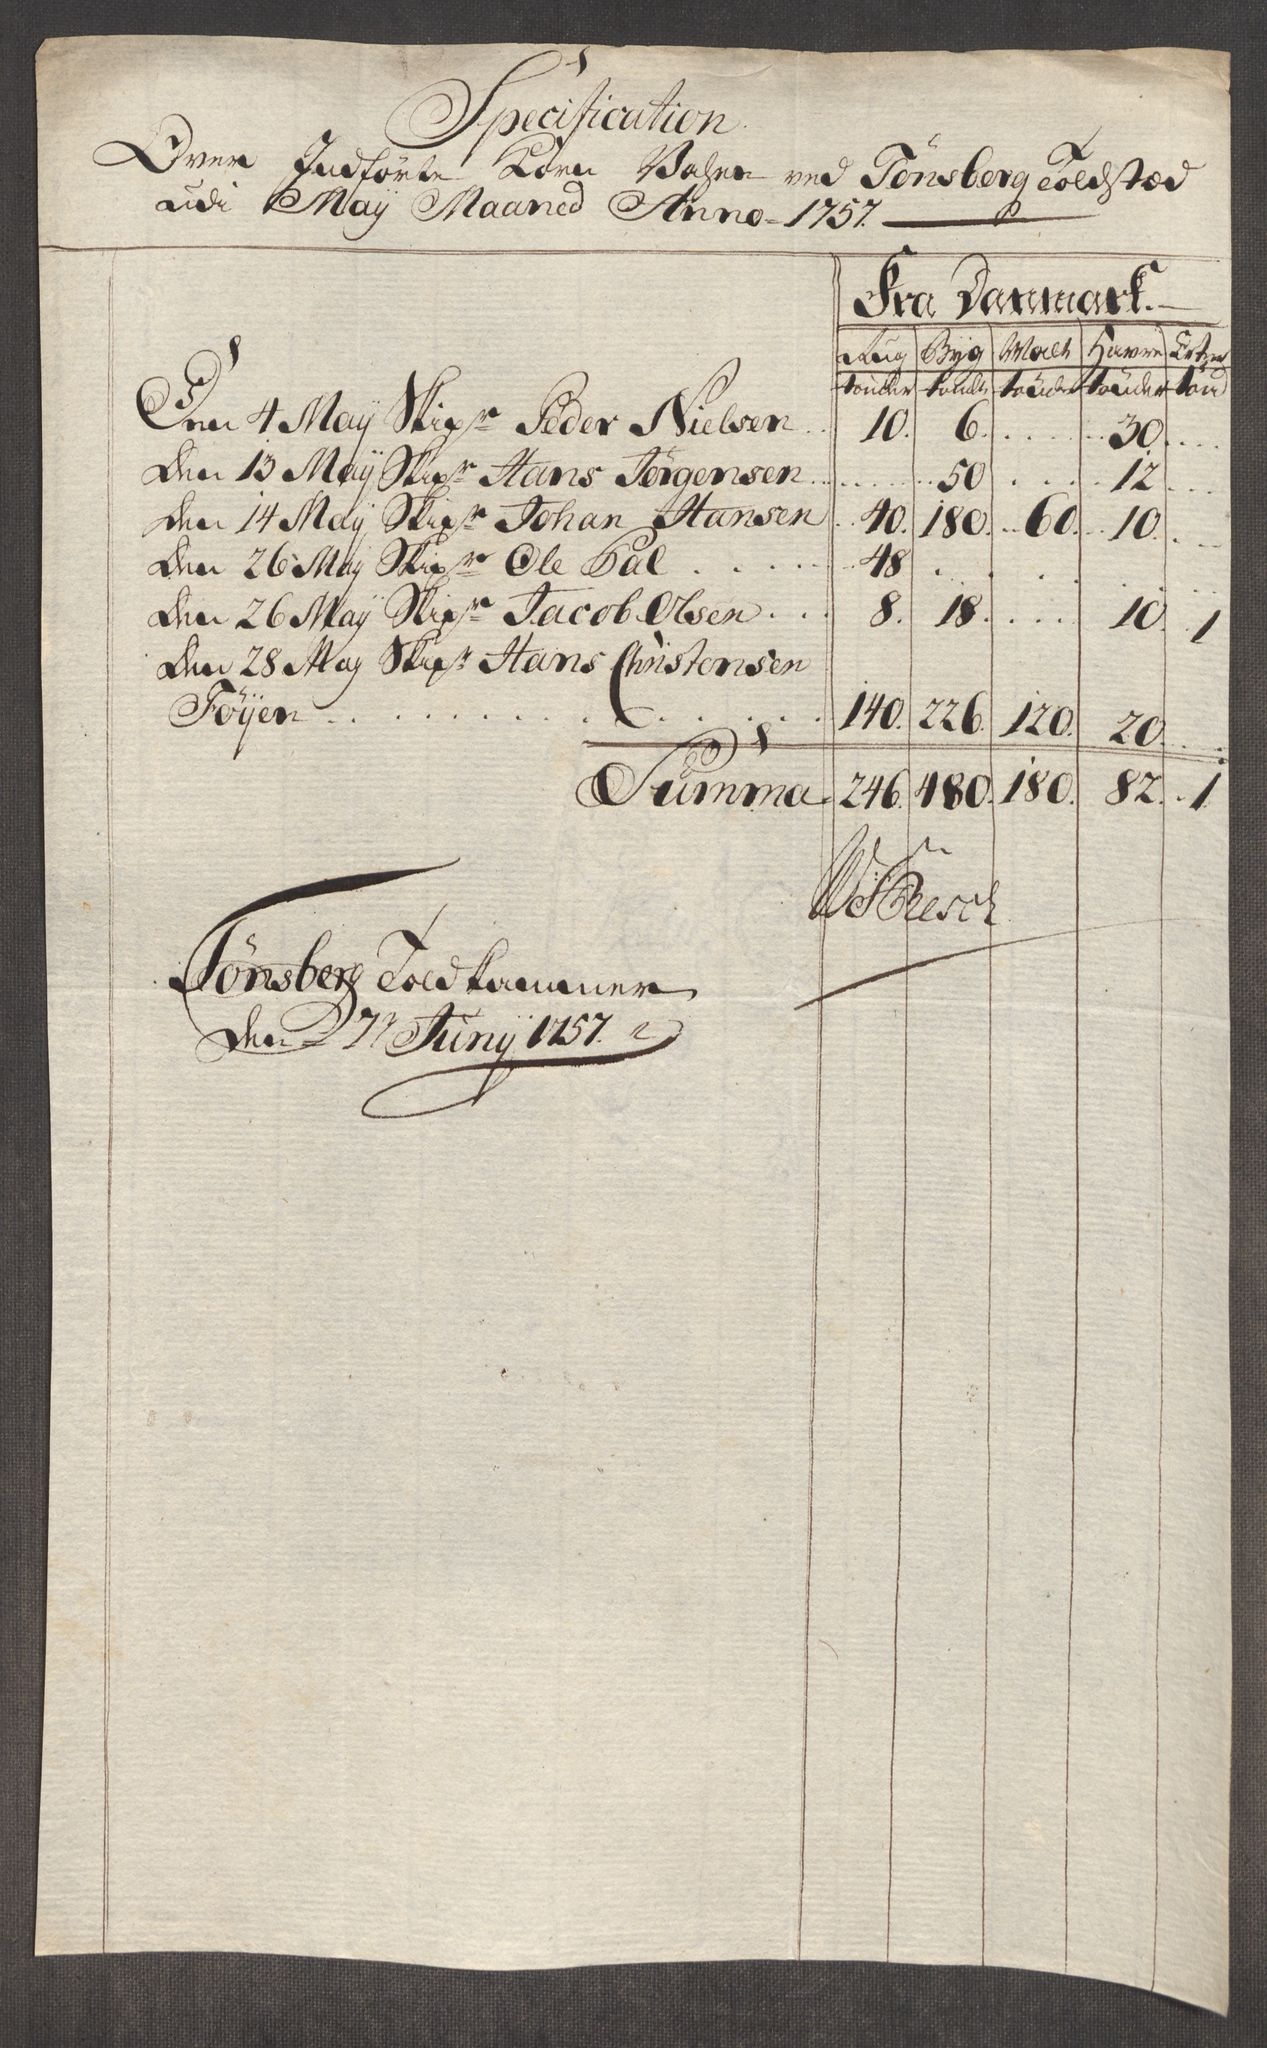 Specification
Over Indførte Korn Vahrer ved Tönsberg Toldstæd
udi May Maaned Anno 1757.
Fra Danmark.
Rug Byg Malt Havre Ertzer
tönder tönde tönder tönder tönd
Den 4 Maÿ Skipr Peder Nielsen .. 10. 6. . . . . 30. . . .
Den 13 Maÿ Skipr Hans Jörgensen . . . . . 50 . . . . 12 . . .
den 14 Maÿ Skipr Johan Hansen .. 40. 180. .. 60. .. 10. . . .
den 26 Maÿ Skipr Ole Pal . . . . . 48 . . . . . .
den 26 Maÿ Skipr Jacob Olsen . . . 8. 18. . . . 10. . 1
den 28 Maÿ Skipr Hans Christensen
Föÿen . . . . . . . . . . 140. 226. 120. 20. . .
Summa 246. 480. 180. 82. . 1.
Tönsberg Toldkammer
den 7 Junÿ 1757.